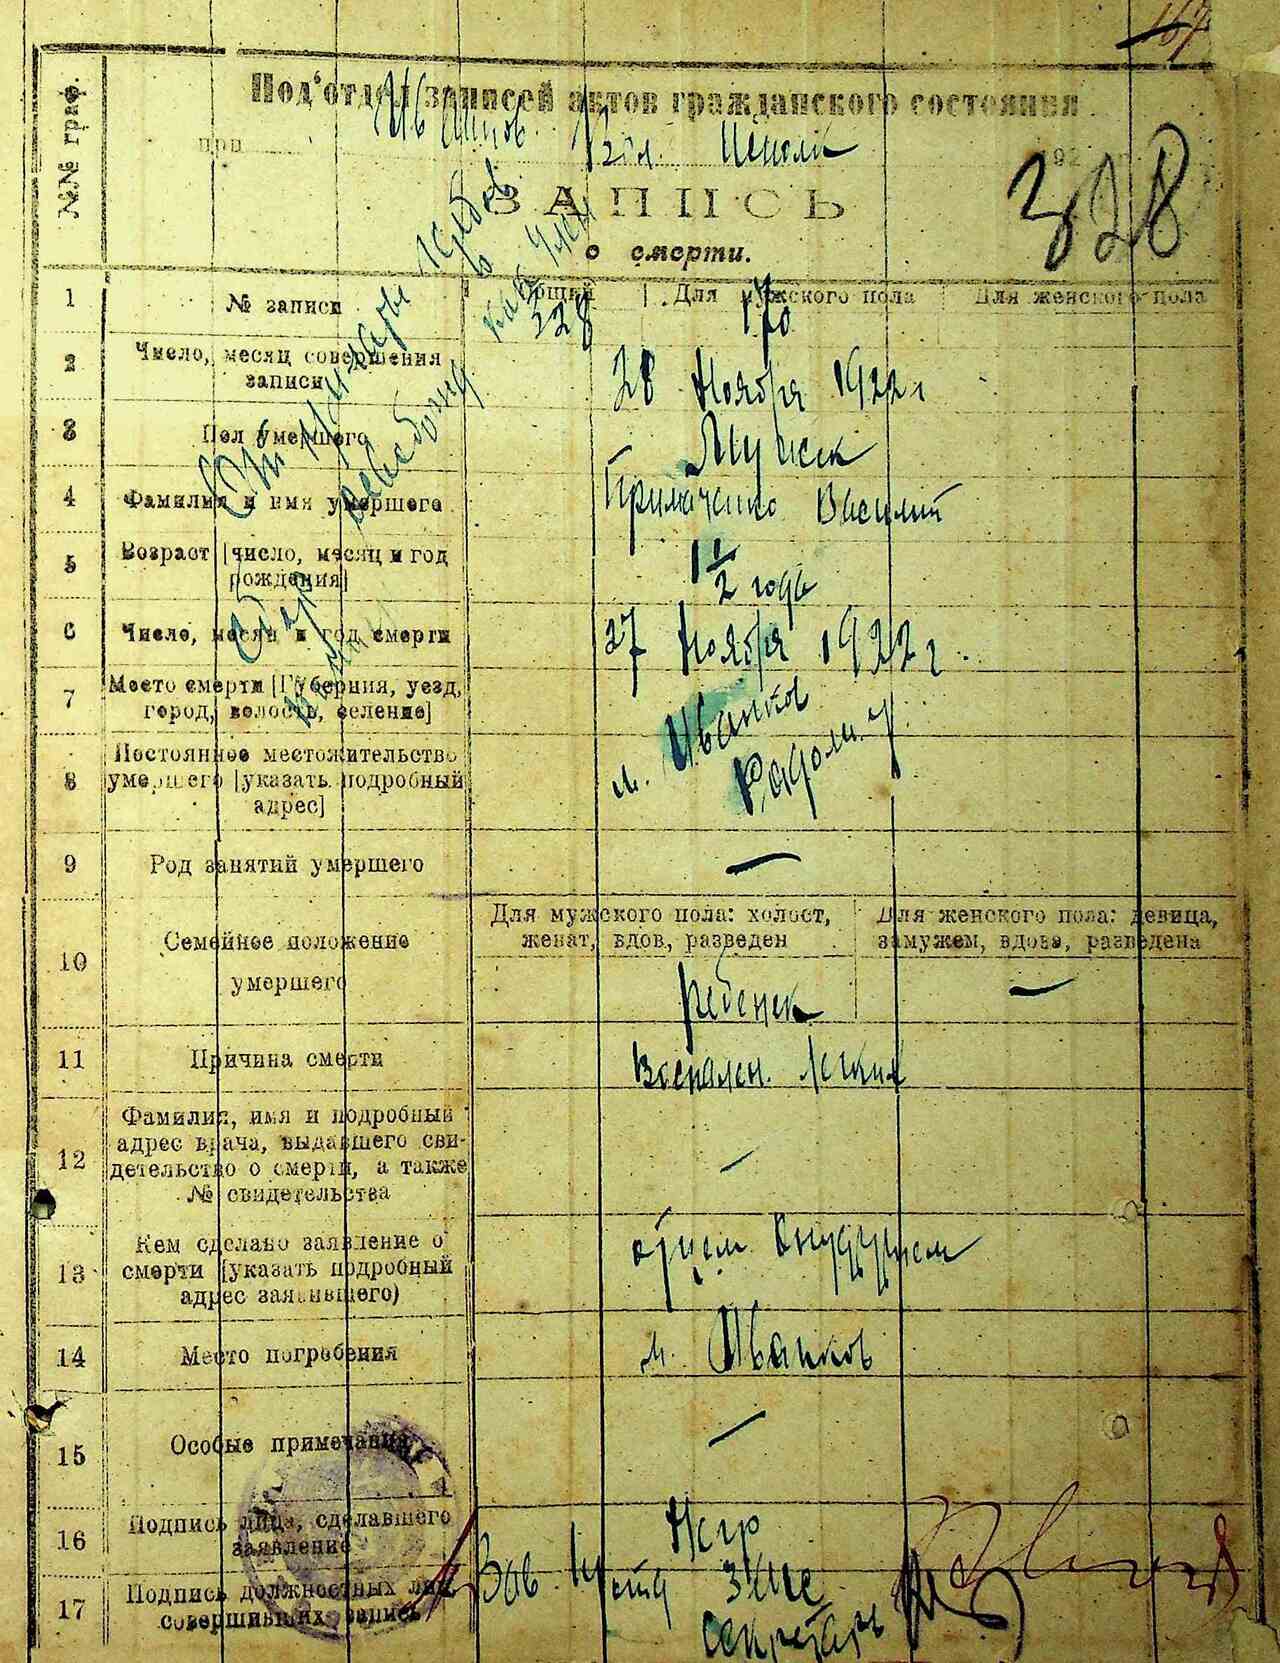 167
№№ граф.
Под'отдел записей актов гражданского состояния
при Иванков. Вол. Исполк 192
328
ЗАПИСЬ
о смерти.
1 № записи Общий Для мужского пола Для женского пола
328 170
2 Число, месяц совершения записи
28 Ноября 1922 г
3 Пол умершого
Мужск
4 Фамилия и имя умершего
Примаченко Василий
5 Возраст [число, месяц и год рождения]
1 1/2 года
6 Число, месяц и год смерти
27 Ноября 1922 г.
7 Место смерти [Губерния, уезд, город, волость, селение]
8 Постоянное местожительство умершего [указать подробный адрес]
м. Иванков
Радом. у.
9 Род занятий умершего
—
10 Семейное положение умершего
Для мужского пола: холост, женат, вдов., разведен
Для женского пола: девица, замужем, вдова, разведена
ребенек —
11 Причина смерти
Воспален. Легких
12 Фамилия, имя и подробный адрес врача, выдавшего свидетельство о смерти, а также № свидетельства
—
13 Кем сделано заявление о смерти [указать подробный адрес заявившего)
отцем
14 Место погребения
м. Иванков
15 Особые примечания
—
16 Подпись лица, сделавшего заявление
Нгр
17 Подпись должностных лиц совершивших запись
Зав. П/отд Загс
Секретарь